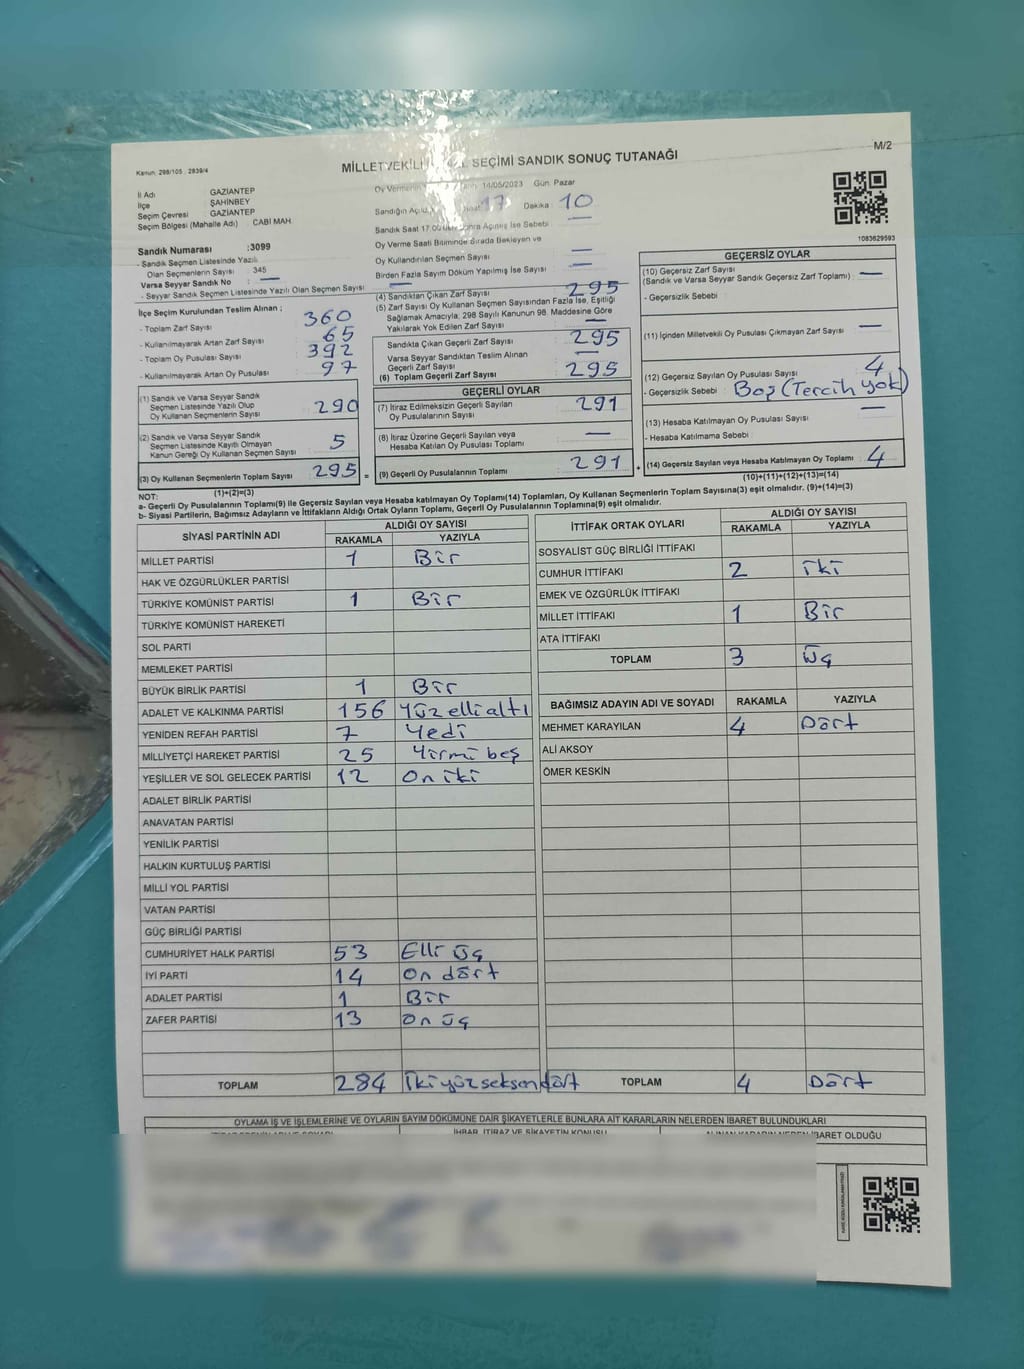 M/2
Kanun: 298/105, 2839/4
MİLLETVEKİLİ SEÇİMİ SANDIK SONUÇ TUTANAĞI
İl Adı GAZİANTEP
İlçe ŞAHİNBEY
Seçim Çevresi GAZİANTEP
Seçim Bölgesi (Mahalle Adı) : CABİ MAH.
Oy Vermenin 14/05/2023 Gün Pazar
Sandığın Açılış Saat 17 Dakika : 10
Sandık Saat 17.00'den Sonra Açılmış İse Sebebi —
Oy Verme Saati Bitiminde Sırada Bekleyen ve
Oy Kullandırılan Seçmen Sayısı —
Birden Fazla Sayım Döküm Yapılmış İse Sayısı —
1083629593
Sandık Numarası :3099
- Sandık Seçmen Listesinde Yazılı
Olan Seçmenlerin Sayısı 345
Varsa Seyyar Sandık No : —
- Seyyar Sandık Seçmen Listesinde Yazılı Olan Seçmen Sayısı —
İlçe Seçim Kurulundan Teslim Alınan ;
- Toplam Zarf Sayısı 360
- Kullanılmayarak Artan Zarf Sayısı 65
- Toplam Oy Pusulası Sayısı 392
- Kullanılmayarak Artan Oy Pusulası 97
(1) Sandık ve Varsa Seyyar Sandık
Seçmen Listesinde Yazılı Olup
Oy Kullanan Seçmenlerin Sayısı 290
(2) Sandık ve Varsa Seyyar Sandık
Seçmen Listesinde Kayıtlı Olmayan
Kanun Gereği Oy Kullanan Seçmen Sayısı 5
(3) Oy Kullanan Seçmenlerin Toplam Sayısı 295 =
(1)+(2)=(3)
(4) Sandıktan Çıkan Zarf Sayısı 295
(5) Zarf Sayısı Oy Kullanan Seçmen Sayısından Fazla İse, Eşitliği
Sağlamak Amacıyla; 298 Sayılı Kanunun 98. Maddesine Göre
Yakılarak Yok Edilen Zarf Sayısı —
Sandıkta Çıkan Geçerli Zarf Sayısı 295
Varsa Seyyar Sandıktan Teslim Alınan
Geçerli Zarf Sayısı —
(6) Toplam Geçerli Zarf Sayısı 295
GEÇERLİ OYLAR
(7) İtiraz Edilmeksizin Geçerli Sayılan
Oy Pusulalarının Sayısı 291
(8) İtiraz Üzerine Geçerli Sayılan veya
Hesaba Katılan Oy Pusulası Toplamı —
(9) Geçerli Oy Pusulalarının Toplamı 291 +
GEÇERSİZ OYLAR
(10) Geçersiz Zarf Sayısı
(Sandık ve Varsa Seyyar Sandık Geçersiz Zarf Toplamı) : —
- Geçersizlik Sebebi :
(11) İçinden Milletvekili Oy Pusulası Çıkmayan Zarf Sayısı : —
(12) Geçersiz Sayılan Oy Pusulası Sayısı : 4
- Geçersizlik Sebebi : Boş (Tercih yok)
(13) Hesaba Katılmayan Oy Pusulası Sayısı : —
- Hesaba Katılmama Sebebi :
(14) Geçersiz Sayılan veya Hesaba Katılmayan Oy Toplamı : 4
(10)+(11)+(12)+(13)=(14)
NOT:
a- Geçerli Oy Pusulalarının Toplamı(9) ile Geçersiz Sayılan veya Hesaba katılmayan Oy Toplamı(14) Toplamları, Oy Kullanan Seçmenlerin Toplam Sayısına(3) eşit olmalıdır. (9)+(14)=(3)
b- Siyasi Partilerin, Bağımsız Adayların ve İttifakların Aldığı Ortak Oyların Toplamı, Geçerli Oy Pusulalarının Toplamına(9) eşit olmalıdır.
SİYASİ PARTİNİN ADI ALDIĞI OY SAYISI
RAKAMLA YAZIYLA
MİLLET PARTİSİ 1 Bir
HAK VE ÖZGÜRLÜKLER PARTİSİ
TÜRKİYE KOMÜNİST PARTİSİ 1 Bir
TÜRKİYE KOMÜNİST HAREKETİ
SOL PARTİ
MEMLEKET PARTİSİ
BÜYÜK BİRLİK PARTİSİ 1 Bir
ADALET VE KALKINMA PARTİSİ 156 Yüz elli altı
YENİDEN REFAH PARTİSİ 7 Yedi
MİLLİYETÇİ HAREKET PARTİSİ 25 Yirmi beş
YEŞİLLER VE SOL GELECEK PARTİSİ 12 On iki
ADALET BİRLİK PARTİSİ
ANAVATAN PARTİSİ
YENİLİK PARTİSİ
HALKIN KURTULUŞ PARTİSİ
MİLLİ YOL PARTİSİ
VATAN PARTİSİ
GÜÇ BİRLİĞİ PARTİSİ
CUMHURİYET HALK PARTİSİ 53 Elli üç
İYİ PARTİ 14 On dört
ADALET PARTİSİ 1 Bir
ZAFER PARTİSİ 13 On üç
TOPLAM 284 İki yüz seksen dört
İTTİFAK ORTAK OYLARI ALDIĞI OY SAYISI
RAKAMLA YAZIYLA
SOSYALİST GÜÇ BİRLİĞİ İTTİFAKI
CUMHUR İTTİFAKI 2 iki
EMEK VE ÖZGÜRLÜK İTTİFAKI
MİLLET İTTİFAKI 1 Bir
ATA İTTİFAKI
TOPLAM 3 Üç
BAĞIMSIZ ADAYIN ADI VE SOYADI RAKAMLA YAZIYLA
MEHMET KARAYILAN 4 Dört
ALİ AKSOY
ÖMER KESKİN
TOPLAM 4 Dört
OYLAMA İŞ VE İŞLEMLERİNE VE OYLARIN SAYIM DÖKÜMÜNE DAİR ŞİKAYETLERLE BUNLARA AİT KARARLARIN NELERDEN İBARET BULUNDUKLARI
İHBAR, İTİRAZ VE ŞİKAYETİN KONUSU ALINAN KARARIN NEDEN İBARET OLDUĞU